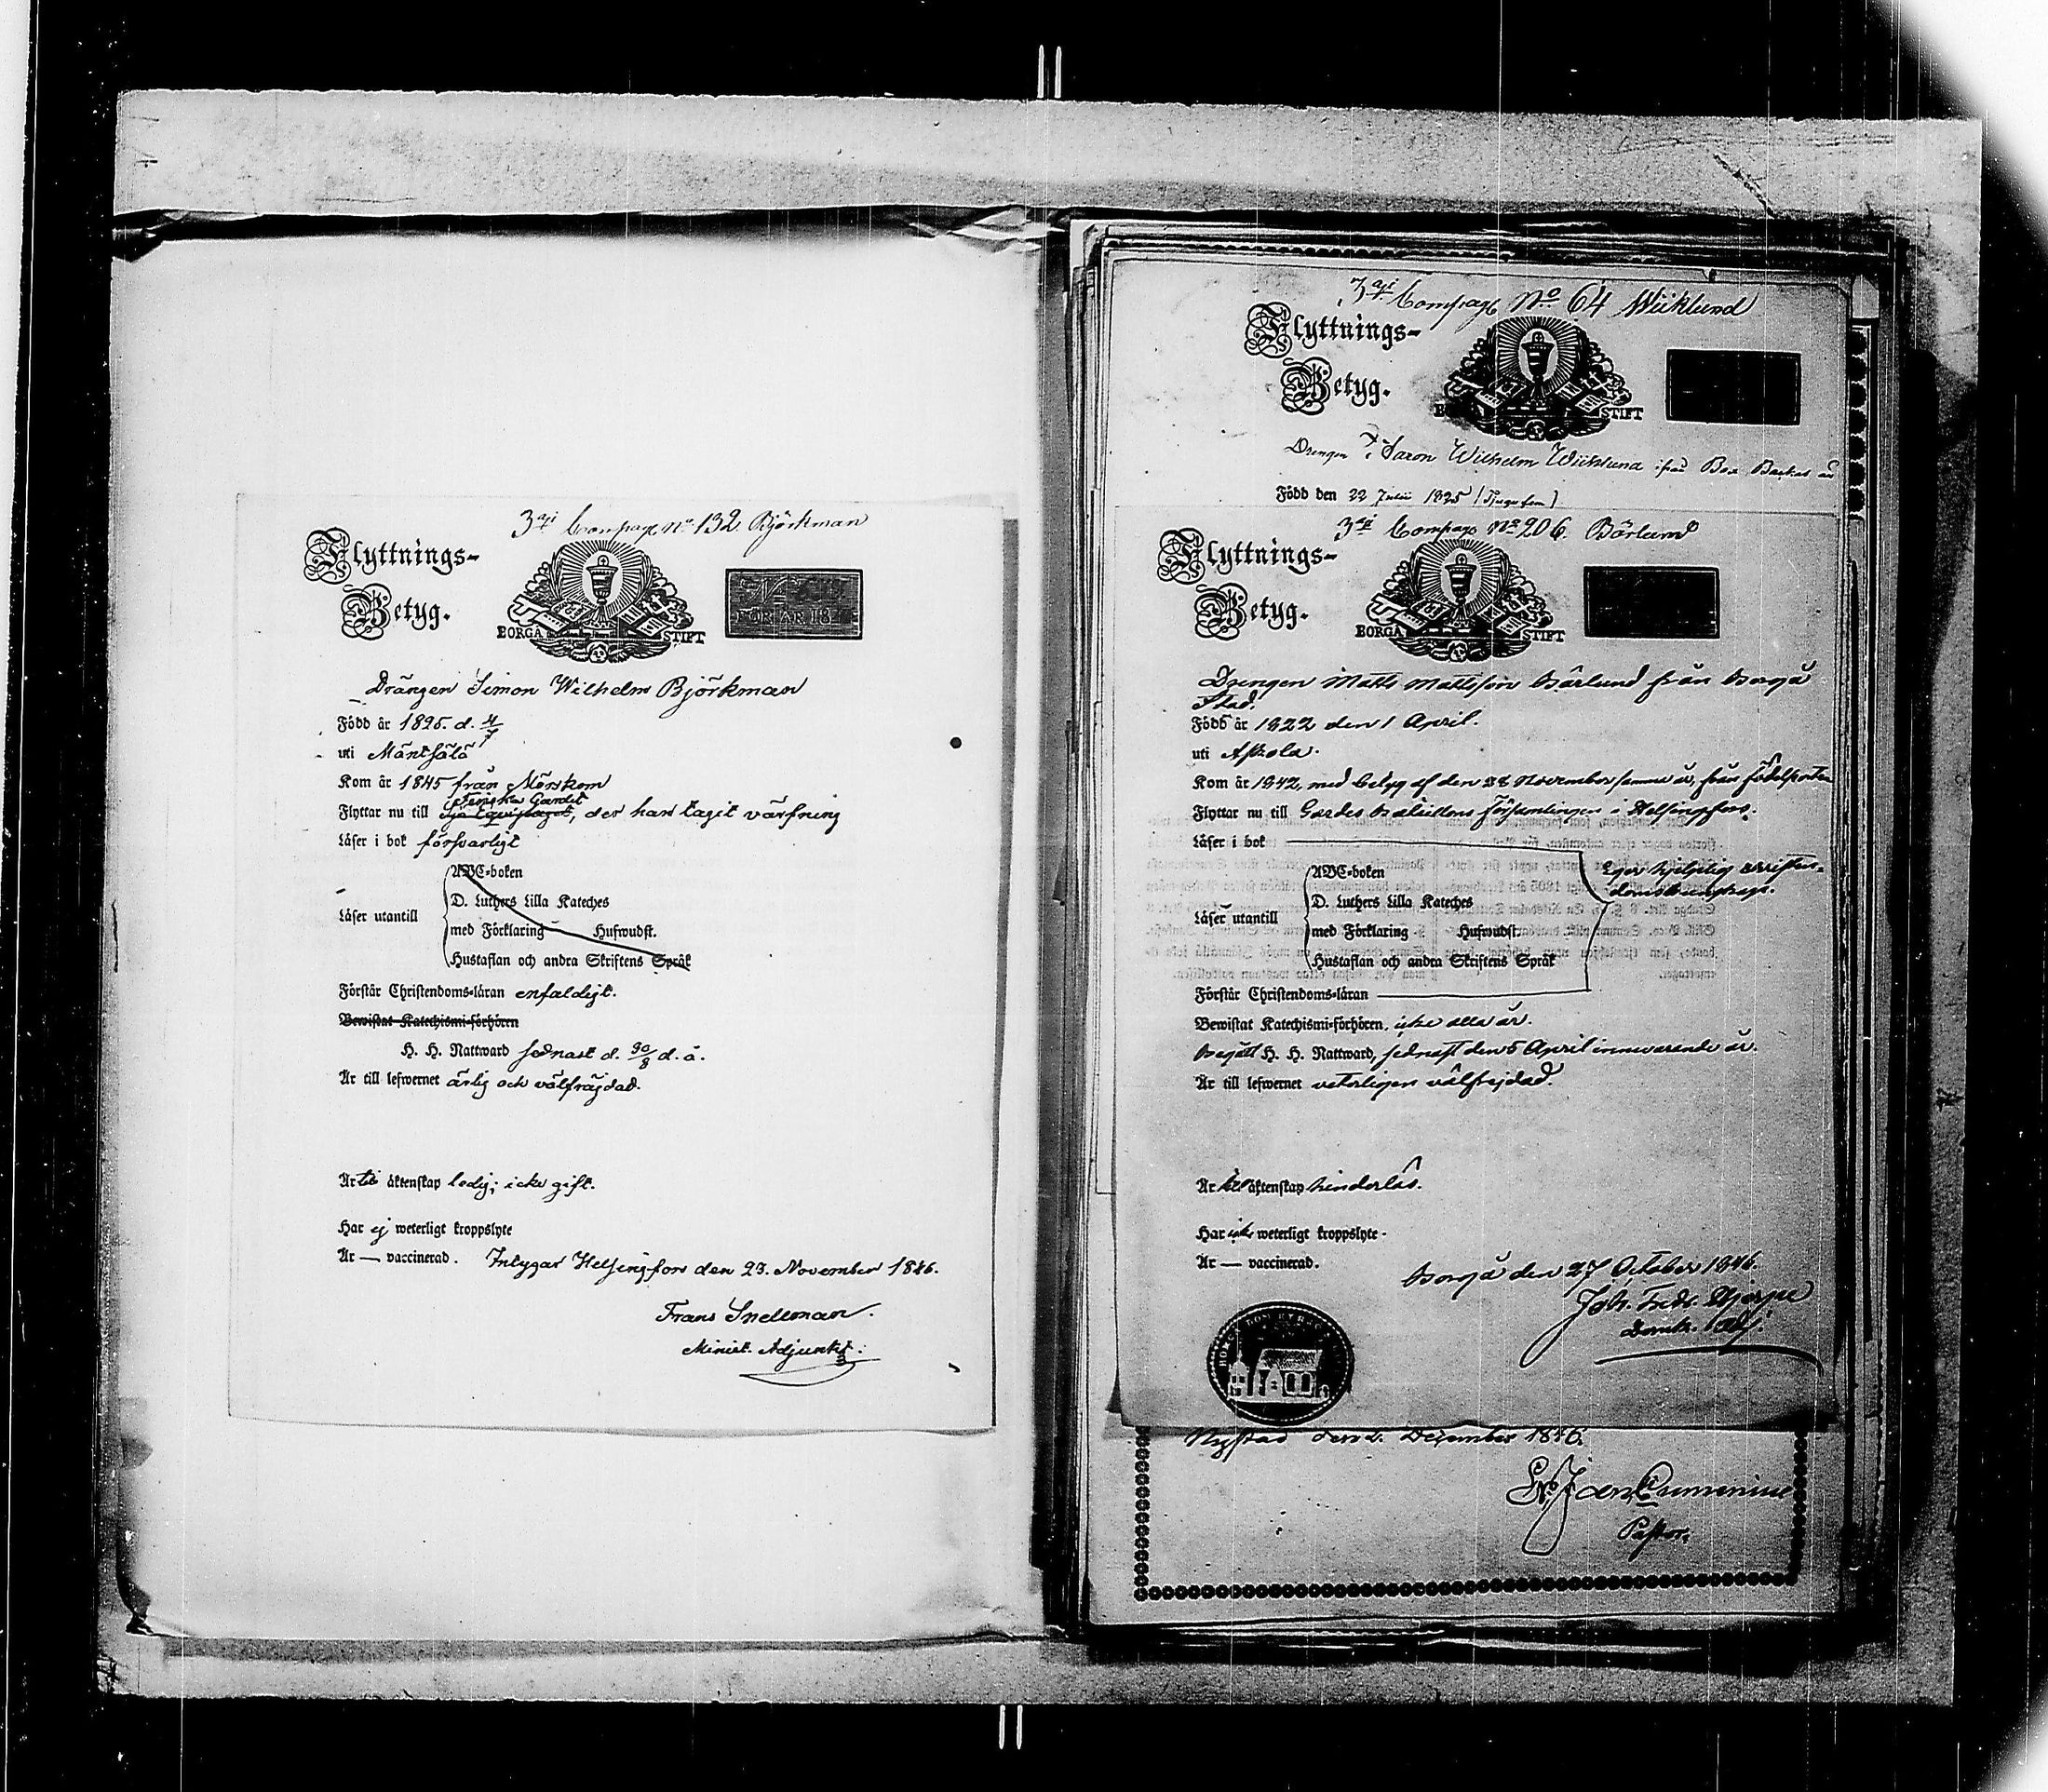 3dji Compagt No 132. Björkman
Flyttnings-
Betyg.
BORGÅ STIFT
FÖR ÅR 18
Drängen Simon Wilhelm Björkman
Född år 1825. d. 4/7
uti Mäntsälä
Kom år 1845 från Mörskom
Finska Gardet
Flyttar nu till Sjö Equipaget, der han tagit värfning
Läser i bok försvarligt
ABC-boken
D. Luthers Lilla Kateches
Läser utantill
med Förklaring Hufwudst.
Hustaflan och andra Skriftens Språk
Förstår Christendoms-läran enfaldigt.
Bewistat Katechismi-förhören
H. H. Nattward sednast d. 30/8 d. å.
Är till lefwernet ärlig och välfräjdad.
Är till äktenskap ledig; icke gift.
Har ej weterligt kroppslyte
Är — vaccinerad. Intygar Helsingfors den 23. November 1846.
Frans Snellman.
Minist. Adjunkt.
3dji Compagt No 64 Wiiklund
Flyttnings-
Betyg.
STIFT
Drengen Wilhelm Wiiklund ifrån Box
Född den 22 Julii 1825
3dji Compagt No 206. Bärlund
Flyttnings-
Betyg.
BORGÅ STIFT
Drengen Matts Mattsson Bärlund från Borgå
Stad.
Född år 1822 den 1 April.
uti Askola.
Kom år 1842, med betyg af den 28 November samma år, från födelseorten
Flyttar nu till Gardes Bataillons församlingen i Helsingfors.
Läser i bok
Eger hjelplig christen-
domskunskap.
ABC-boken
D. Luthers Lilla Kateches
Läser utantill
med Förklaring Hufwudst.
Hustaflan och andra Skriftens Språk
Förstår Christendoms-läran
Bewistat Katechismi-förhören, icke alla år.
Begått H. H. Nattward, sednast den 5 April innevarande år.
Är till lefwernet veterligen välfrejdad.
Är till äktenskap hinderlös.
Har icke weterligt kroppslyte.
Är — vaccinerad.
Borgå den 27 October 1846.
Joh. Fredr.
Nystad den 2. December 1846.
Pastor.